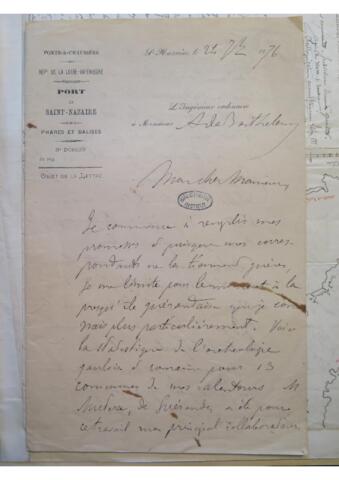 PONTS-&-CHAUSSÉES
DÉPt DE LA LOIRE-INFÉRIEURE
PORT
DE
SAINT-NAZAIRE
PHARES ET BALISES
No D'ORDRE
OBJET DE LA LETTRE
St Nazaire, le 24 7bre 1876
L'Ingénieur ordinaire
à Monsieur A. de Barthélemy
Mon cher Monsieur,
Je commence à remplir mes
promesses et puisque mes corres-
pondants ne les tiennent guères,
je me limite pour le moment à la
presqu'île guérandaise que je con-
nais plus particulièrement. Voici
la statistique de l'archéologie
gauloise et romaine pour 13
communes de mes alentours. M
de Guérande, a été pour
ce travail mon principal collaborateur